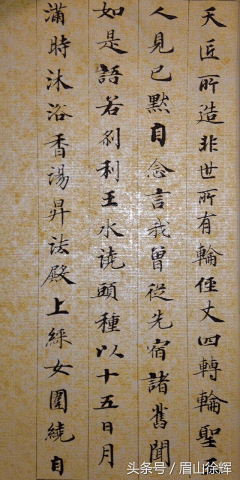 天匠所造非世所有輪徑丈四轉輪聖王
人見已默自念言我曾從先宿諸舊聞
如是語若刹利王水澆頭種以十五日月
滿時沐浴香湯昇法殿上綵女圍繞自
头条号 / 眉山徐辉